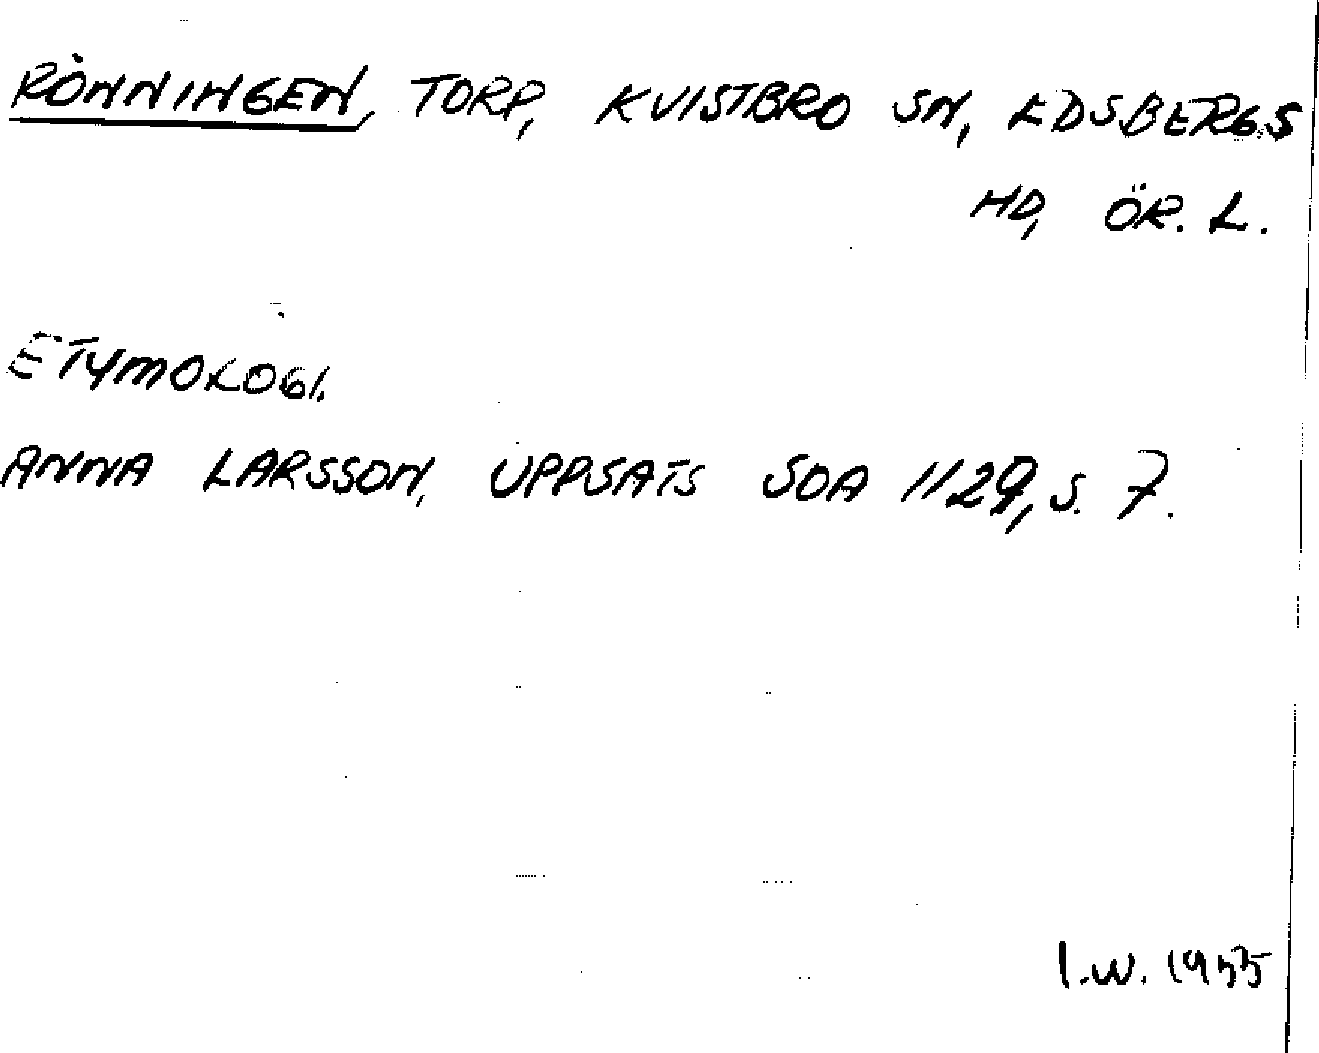 RÖNNINGEN, TORP, KVISTBRO SN, EDSBERGS
HD, ÖR. L.
ETYMOLOGI.
ANNA LARSSON, UPPSATS SOA 1129, S. 7.
I.W. 1955